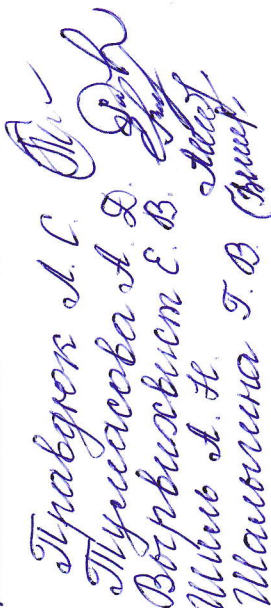 Правдюк Л. С.
Тумасова А. Д.
Вырвихвист Е. В.
Шиль А. Н.
Шалыгина Т. В.